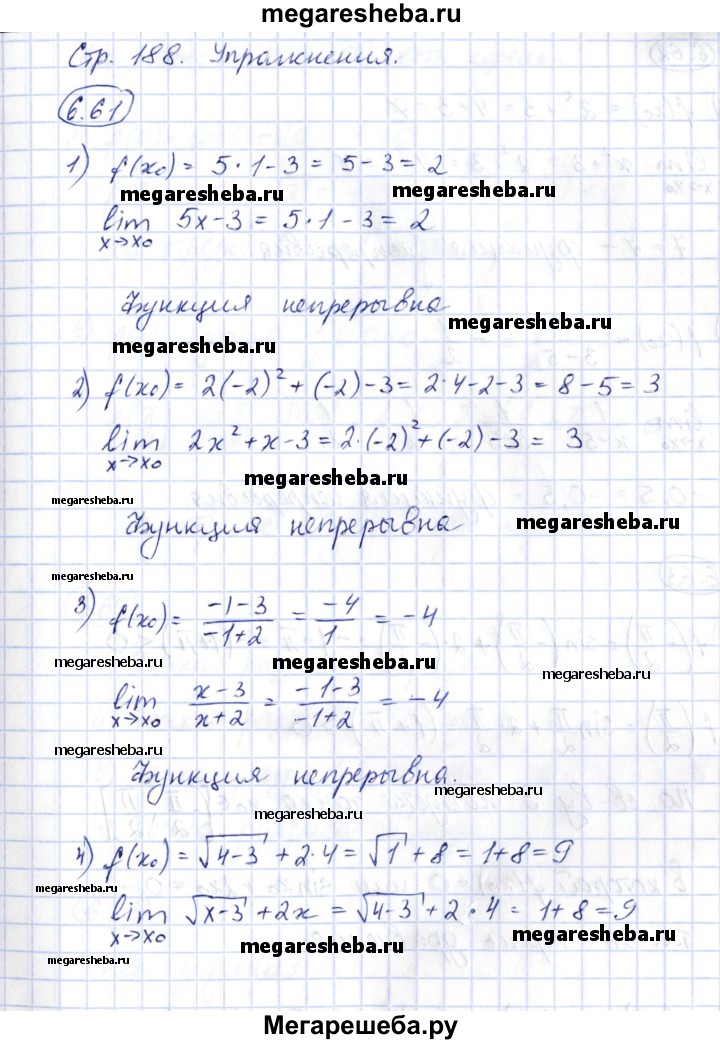 megaresheba.ru
Стр. 188. Упражнения.
6.61
1) f(x₀) = 5·1-3 = 5-3 = 2
megaresheba.ru megaresheba.ru
lim 5x-3 = 5·1-3 = 2
x→x₀
Функция непрерывна
megaresheba.ru
megaresheba.ru
2) f(x₀) = 2(-2)² + (-2) - 3 = 2·4-2-3 = 8-5 = 3
lim 2x² + x - 3 = 2·(-2)² + (-2) - 3 = 3
x→x₀
megaresheba.ru
megaresheba.ru
Функция непрерывна megaresheba.ru
megaresheba.ru
3) f(x₀) = (-1-3)/(-1+2) = (-4)/1 = -4
megaresheba.ru megaresheba.ru megaresheba.ru
lim (x-3)/(x+2) = (-1-3)/(-1+2) = -4
x→x₀
megaresheba.ru
Функция непрерывна.
megaresheba.ru
megaresheba.ru
4) f(x₀) = √(4-3) + 2·4 = √1 + 8 = 1+8 = 9
megaresheba.ru megaresheba.ru
lim √(x-3) + 2x = √(4-3) + 2·4 = 1+8 = 9
x→x₀
megaresheba.ru megaresheba.ru megaresheba.ru
Мегарешеба.ру